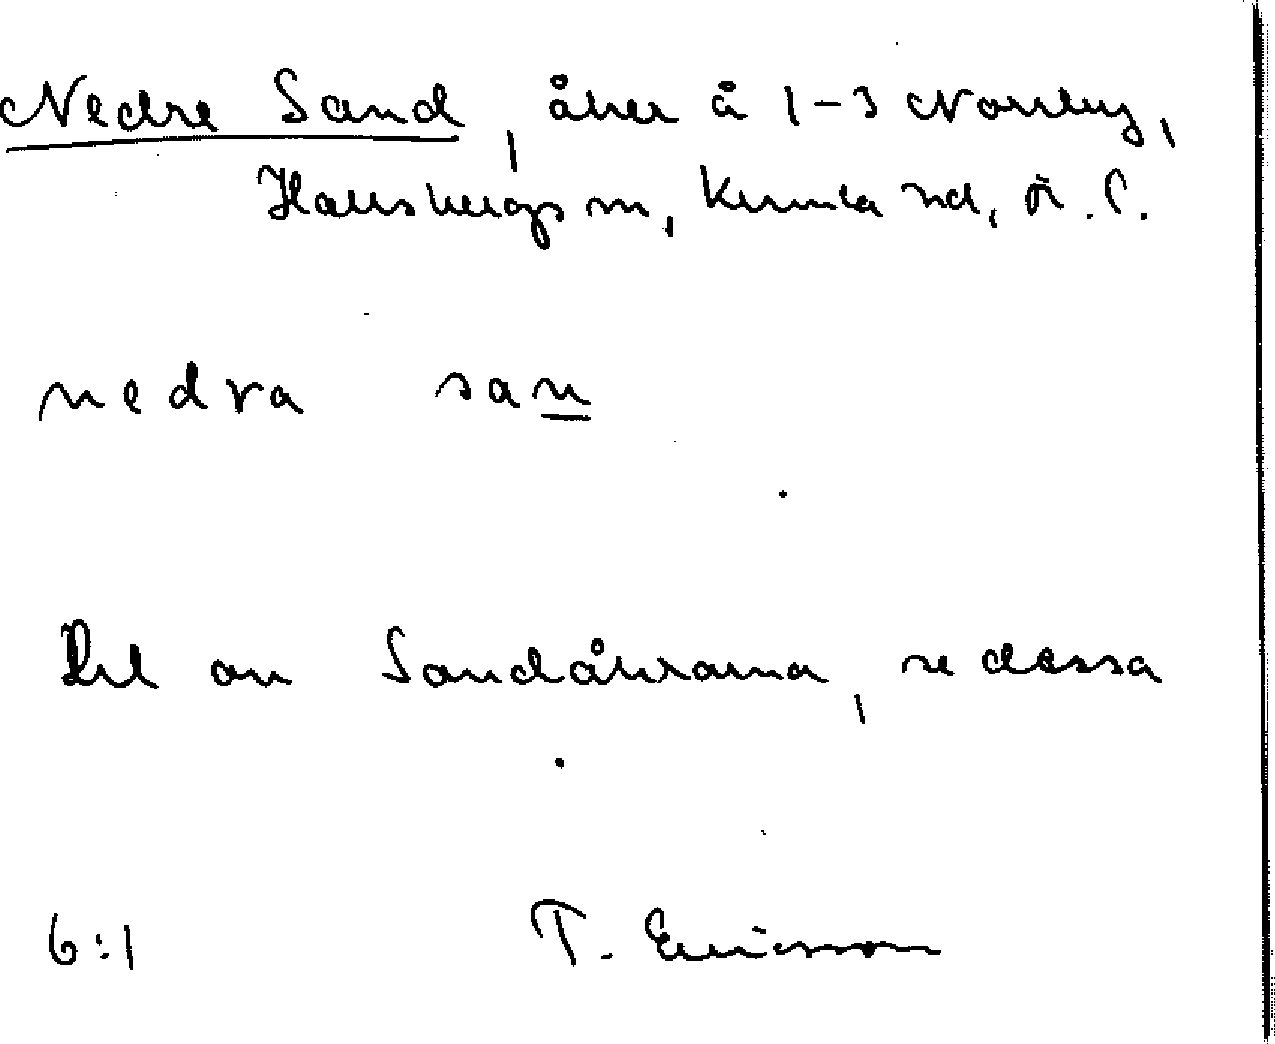 Nedre Sand, åker å 1-3 Norrby,
Hallsbergs sn, Kumla hd, Ö. L.
nedra san
Del av Sandåkrarna, se dessa
6:1 T. Ericsson